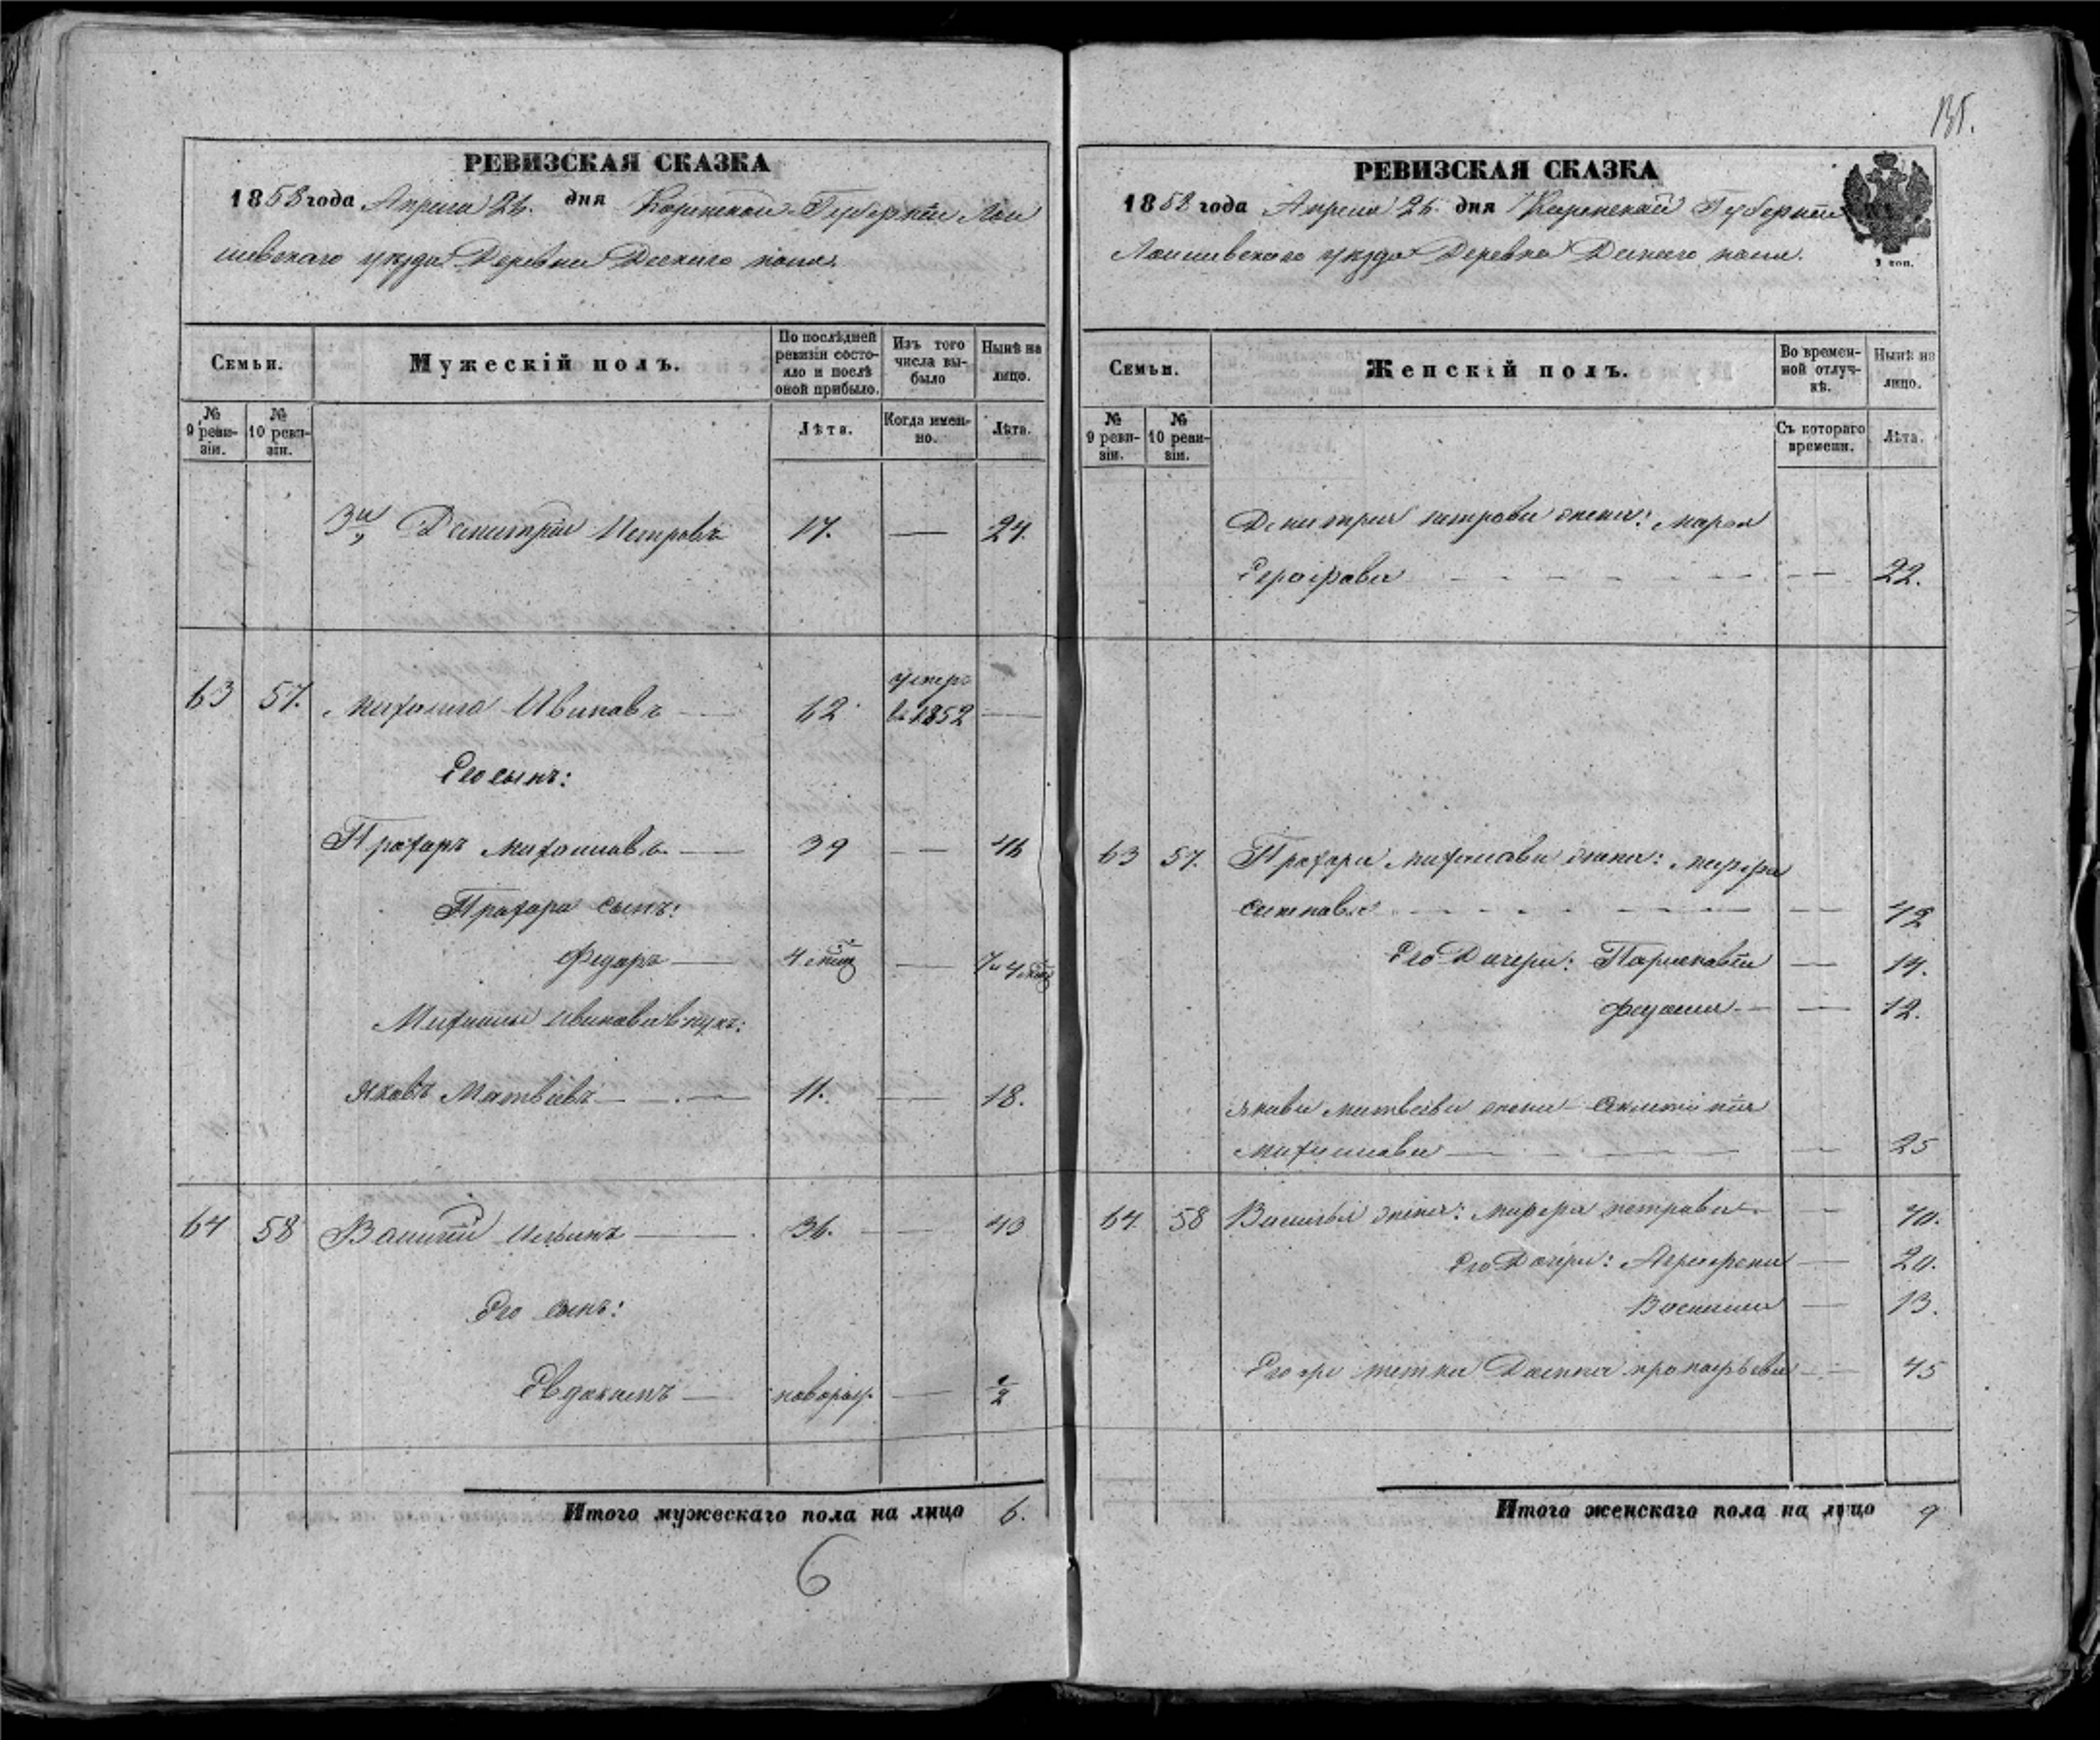 РЕВИЗСКАЯ СКАЗКА
1858 года Апреля дня Казанской Губернiи Лаи
шевскаго уезда Деревни
Семьи.
Мужескiй полъ.
По послѣдней ревизiи состо-
яло и послѣ
оной прибыло.
Изъ того
числа вы-
было
Нынѣ на
лицо.
№
9 реви-
зiи.
№
10 реви-
зiи.
Лѣта.
Когда имен-
но.
Лѣта.
3й Дмитрiй Петровъ 17. — 24.
63 57. Михаила Ивановъ — 62. умеръ въ 1852 —
Его сынъ:
Прохоръ Михаиловъ — 39 — 46
Прохора сынъ:
Федоръ — 4 — 7 4
Михаилы Иванова внукъ:
Яковъ Матвѣевъ — 11. — 18.
64 58 Василiй — 36. — 43
Его сынъ:
Евдокимъ — поворож. — ½
Итого мужескаго пола на лицо 6.
6
135.
РЕВИЗСКАЯ СКАЗКА
1858 года Апреля дня Казанской Губернiи
Лаишевскаго уезда Деревна
Семьи.
Женскiй полъ.
Во времен-
ной отлуч-
кѣ.
Нынѣ на
лицо.
№
9 реви-
зiи.
№
10 реви-
зiи.
Съ котораго
времени.
Лѣта.
Дмитрия петрова жена: марья
— 22.
63 57. Прохора михаилова жена:
— 42
Его Дочери: Парасковiя — 14.
— 12.
якова матвеева жена
михаилова — 25
64. 58 Василья жена: петрова — 40.
Его Дочери: Аграфена — 20.
— 13.
тетка — 45
Итого женскаго пола на лицо 9